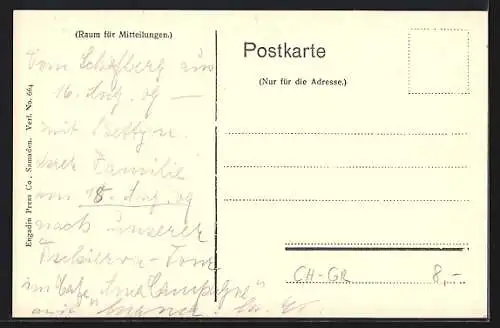 (Raum für Mitteilungen.)
Vom Schafberg aus
16. Aug. 09 —
mit Betty u.
ihrer Familie
am 18. Aug. 09
nach unserer
Tschierva-Tour
im Cafe
Engadin Press Co., Samaden. Verl. No. 664
Postkarte
(Nur für die Adresse.)
CH-GR 8,-